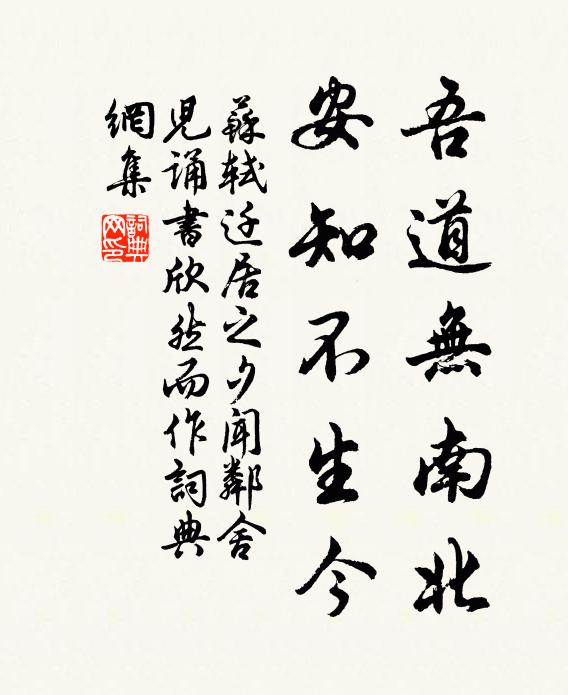 吾道無南北
安知不生今
蘇軾迁居之夕聞鄰舍
児誦書欣然而作詞典
網集
詞典
网印